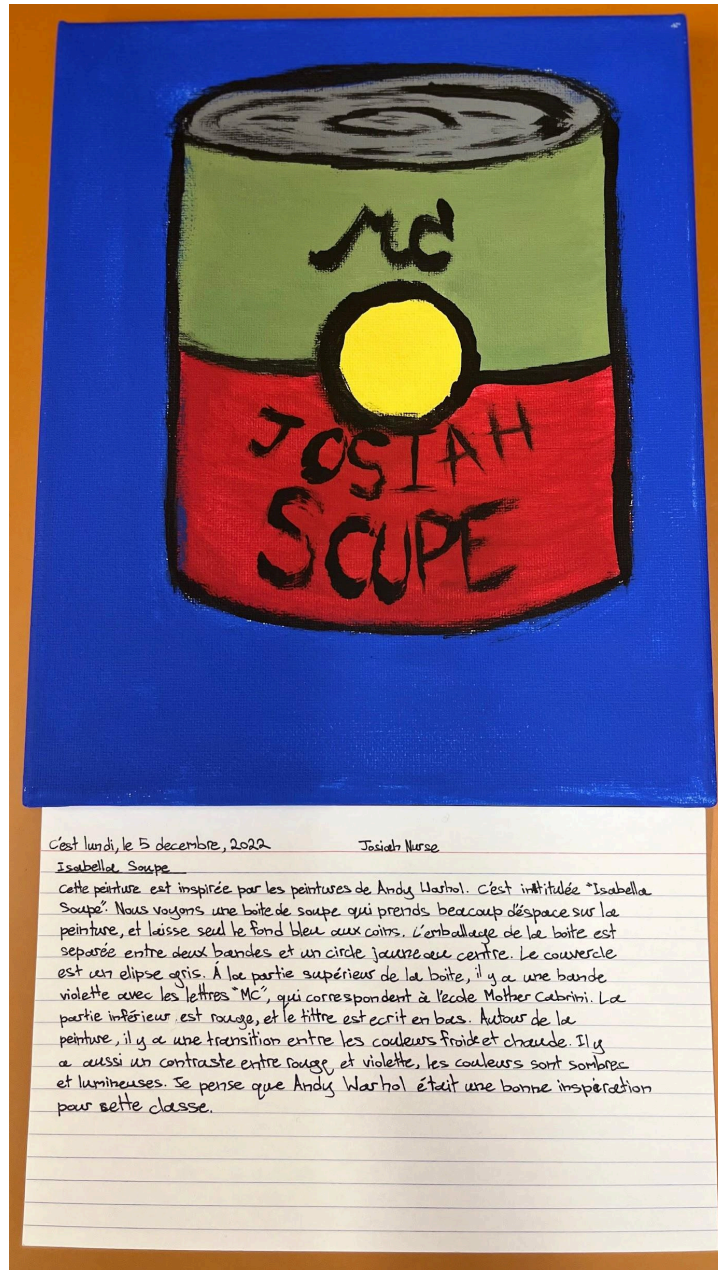 MC
JOSIAH
SOUPE
C'est lundi, le 5 decembre, 2022 Josiah Nurse
Isabella Soupe
Cette peinture est inspirée par les peintures de Andy Warhol. C'est intitulée "Isabella
Soupe". Nous voyons une boite de soupe qui prends beacoup d'éspace sur la
peinture, et laisse seul le fond bleu aux coins. L'emballage de la boite est
separée entre deux bandes et un circle jaune au centre. Le couvercle
est un elipse gris. Á la partie supérieur de la boite, il y a une bande
violette avec les lettres "MC", qui correspondent à l'école Mother Cabrini. La
partie inférieur est rouge, et le tittre est ecrit en bas. Autour de la
peinture, il y a une transition entre les couleurs froide et chaude. Il y
a aussi un contraste entre rouge et violette, les couleurs sont sombres
et lumineuses. Je pense que Andy Warhol était une bonne inspiration
pour sette classe.